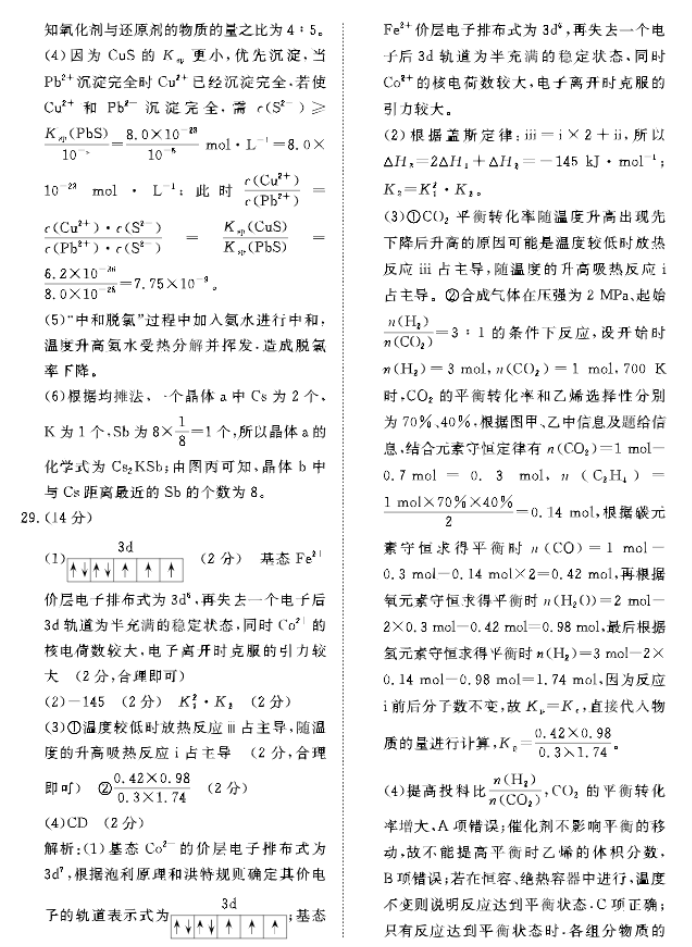 知氧化剂与还原剂的物质的量之比为4∶5。
(4)因为 CuS 的 Ksp 更小,优先沉淀,当
Pb²⁺沉淀完全时 Cu²⁺已经沉淀完全,若使
Cu²⁺ 和 Pb²⁺ 沉淀完全,需 c(S²⁻)≥
Ksp(PbS)/10⁻⁵=8.0×10⁻²⁸/10⁻⁵ mol·L⁻¹=8.0×
10⁻²³ mol·L⁻¹;此时 c(Cu²⁺)/c(Pb²⁺) =
c(Cu²⁺)·c(S²⁻)/c(Pb²⁺)·c(S²⁻) = Ksp(CuS)/Ksp(PbS) =
6.2×10⁻³⁶/8.0×10⁻²⁸=7.75×10⁻⁹。
(5)“中和脱氯”过程中加入氨水进行中和,
温度升高氨水受热分解并挥发,造成脱氯
率下降。
(6)根据均摊法,一个晶体 a 中 Cs 为 2 个,
K 为 1 个,Sb 为 8×1/8=1 个,所以晶体 a 的
化学式为 Cs₂KSb;由图丙可知,晶体 b 中
与 Cs 距离最近的 Sb 的个数为 8。
29.(14 分)
(1) 3d ↑↓ ↑↓ ↑ ↑ ↑ (2 分) 基态 Fe²⁺
价层电子排布式为 3d⁶,再失去一个电子后
3d 轨道为半充满的稳定状态,同时 Co²⁺ 的
核电荷数较大,电子离开时克服的引力较
大 (2 分,合理即可)
(2)−145 (2 分) K₁²·K₂ (2 分)
(3)①温度较低时放热反应 ⅲ 占主导,随温
度的升高吸热反应 ⅰ 占主导 (2 分,合理
即可) ②0.42×0.98/0.3×1.74 (2 分)
(4)CD (2 分)
解析:(1)基态 Co²⁺ 的价层电子排布式为
3d⁷,根据泡利原理和洪特规则确定其价电
子的轨道表示式为 3d ↑↓ ↑↓ ↑ ↑ ↑;基态
Fe²⁺ 价层电子排布式为 3d⁶,再失去一个电
子后 3d 轨道为半充满的稳定状态,同时
Co²⁺ 的核电荷数较大,电子离开时克服的
引力较大。
(2)根据盖斯定律:ⅲ=ⅰ×2+ⅱ,所以
ΔH₃=2ΔH₁+ΔH₂=−145 kJ·mol⁻¹;
K₃=K₁²·K₂。
(3)①CO₂ 平衡转化率随温度升高出现先
下降后升高的原因可能是温度较低时放热
反应 ⅲ 占主导,随温度的升高吸热反应 ⅰ
占主导。②合成气体在压强为 2 MPa、起始
n(H₂)/n(CO₂)=3∶1 的条件下反应,设开始时
n(H₂)=3 mol,n(CO₂)=1 mol,700 K
时,CO₂ 的平衡转化率和乙烯选择性分别
为 70%、40%,根据图甲、乙中信息及题给信
息,结合元素守恒定律有 n(CO₂)=1 mol−
0.7 mol = 0.3 mol, n(C₂H₄) =
1 mol×70%×40%/2=0.14 mol,根据碳元
素守恒求得平衡时 n(CO)=1 mol−
0.3 mol−0.14 mol×2=0.42 mol,再根据
氧元素守恒求得平衡时 n(H₂O)=2 mol−
2×0.3 mol−0.42 mol=0.98 mol,最后根据
氢元素守恒求得平衡时 n(H₂)=3 mol−2×
0.14 mol−0.98 mol=1.74 mol,因为反应
ⅰ前后分子数不变,故 Kp=Kc,直接代入物
质的量进行计算,Kp=0.42×0.98/0.3×1.74。
(4)提高投料比n(H₂)/n(CO₂),CO₂ 的平衡转化
率增大,A 项错误;催化剂不影响平衡的移
动,故不能提高平衡时乙烯的体积分数,
B 项错误;若在恒容、绝热容器中进行,温度
不变则说明反应达到平衡状态,C 项正确;
只有反应达到平衡状态时,各组分物质的